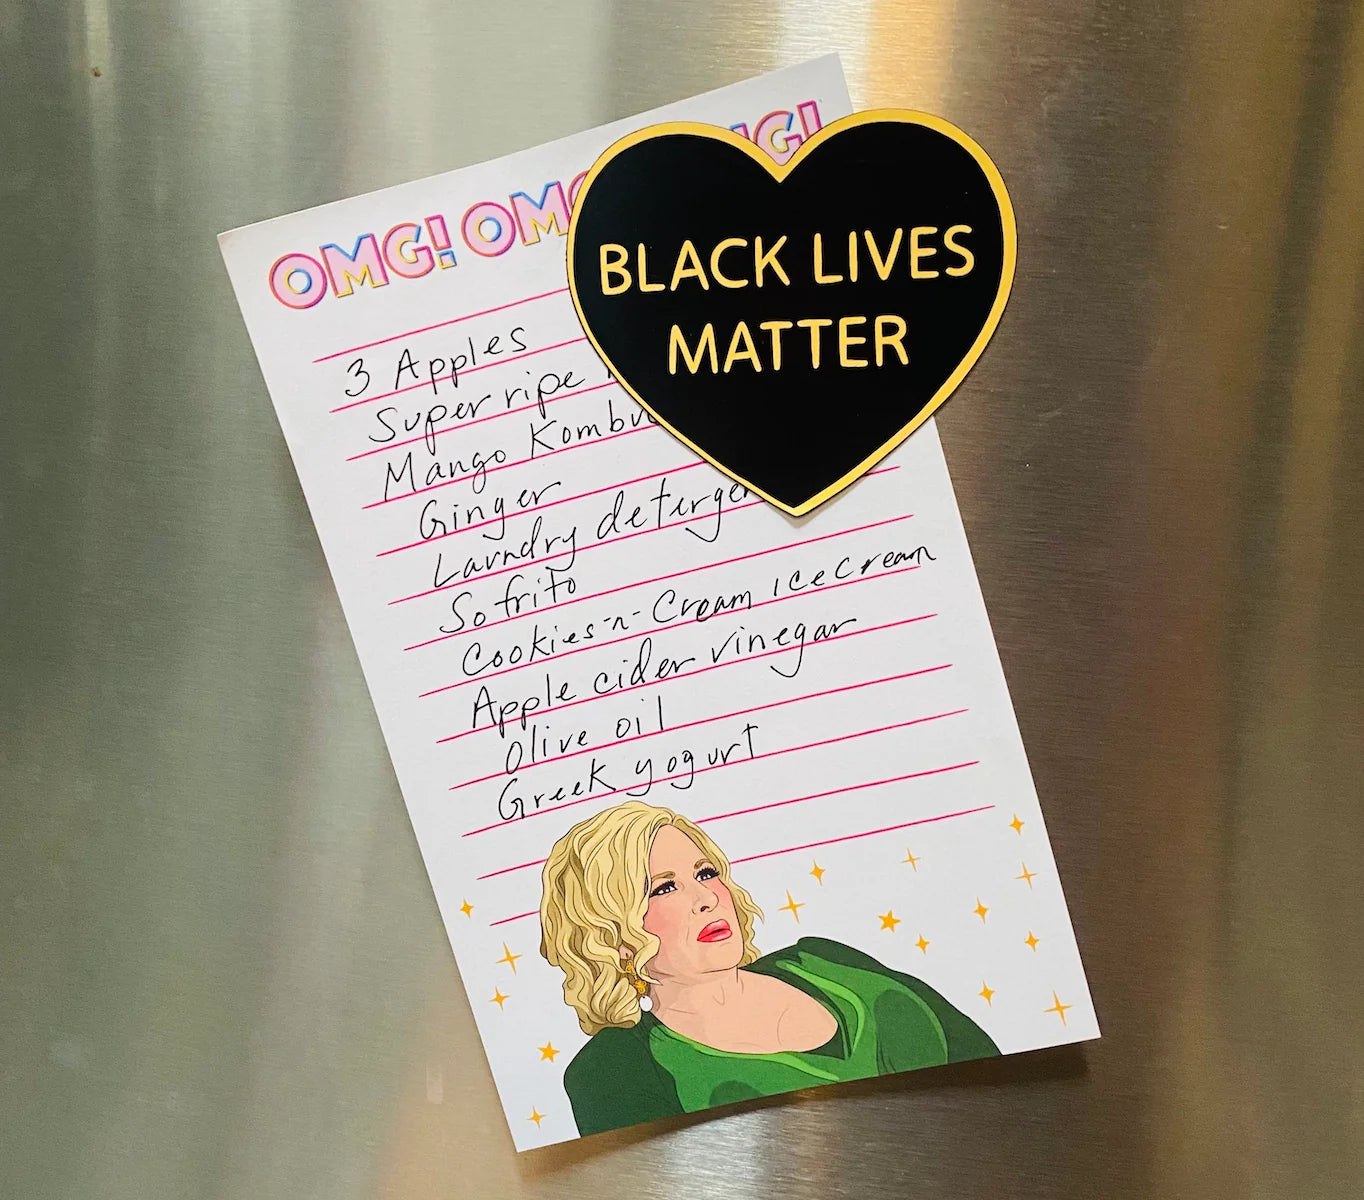 OMG! OMG!
BLACK LIVES
MATTER
3 Apples
Super ripe
Mango
Ginger
Laundry
Sofrito
Cookies-n-Cream ice cream
Apple cider vinegar
Olive oil
Greek yogurt